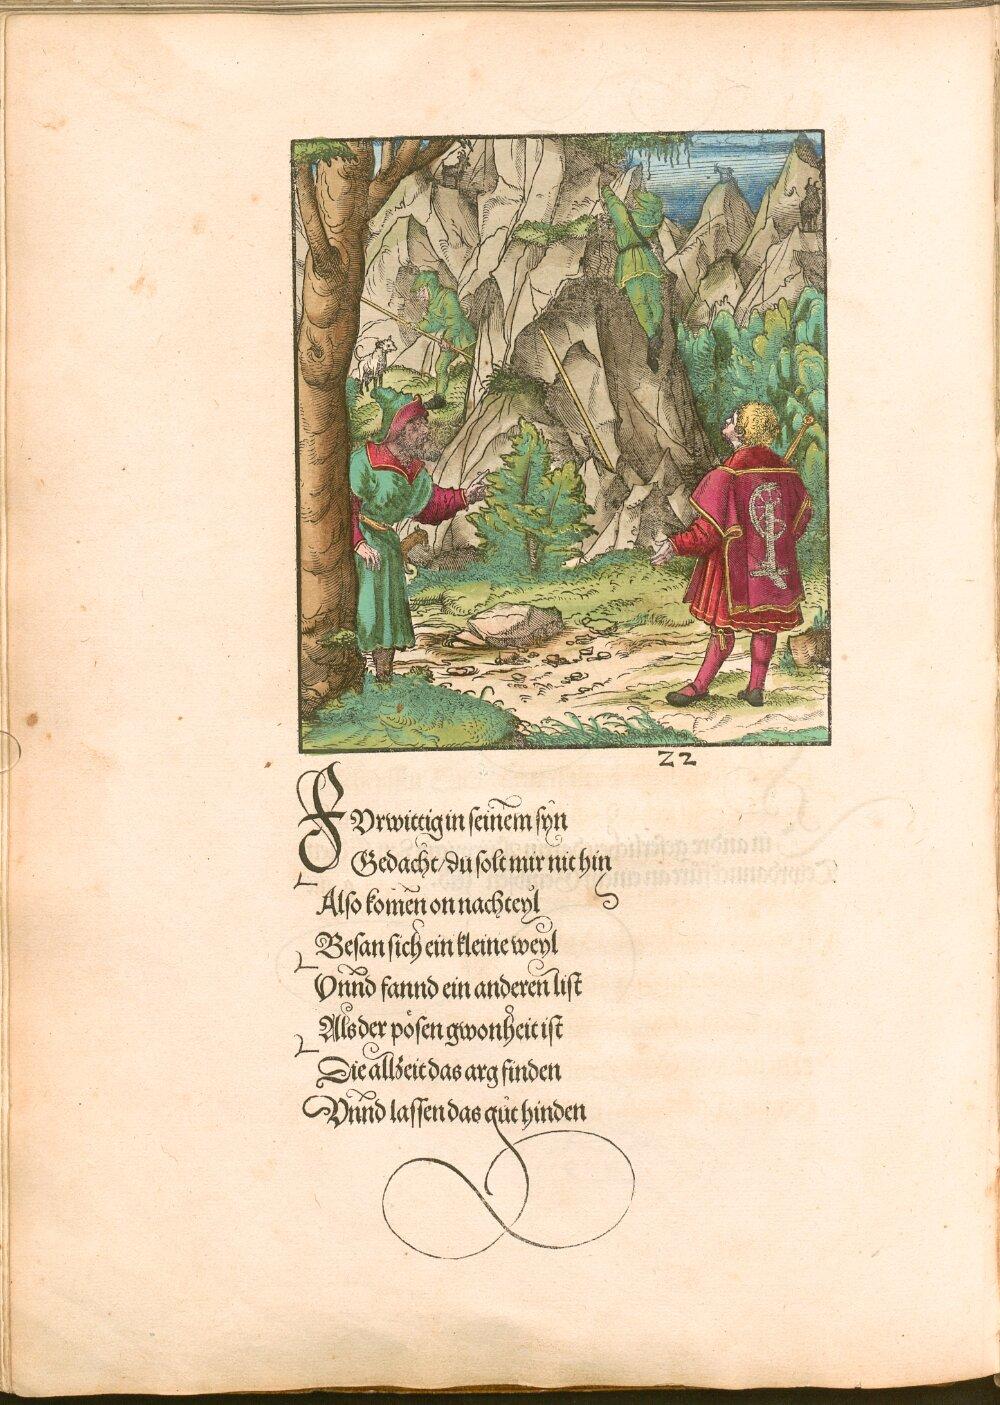 22
FUrwittig in seinem syn
Gedacht/du solt mir nit hin
Also komen on nachteyl
Besan sich ein kleine weyl
Vnnd fannd ein anderen list
Als der pösen gwonheit ist
Die allzeit das arg finden
Vnnd lassen das gůt hinden